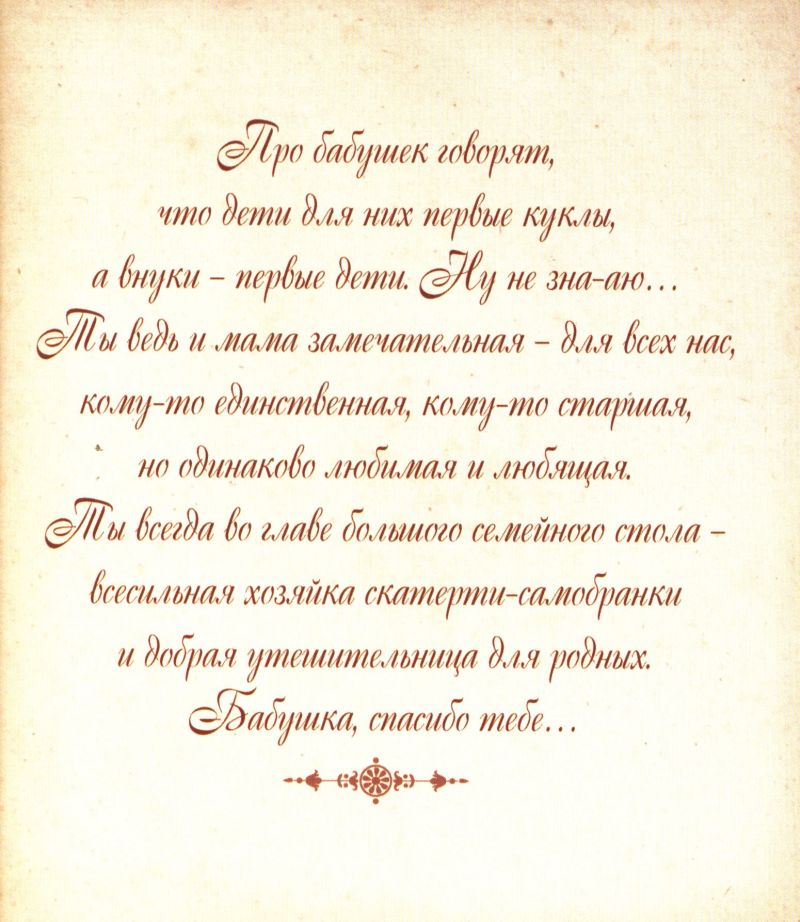 Про бабушек говорят,
что дети для них первые куклы,
а внуки – первые дети. Ну не зна-аю...
Ты ведь и мама замечательная – для всех нас,
кому-то единственная, кому-то старшая,
но одинаково любимая и любящая.
Ты всегда во главе большого семейного стола –
всесильная хозяйка скатерти-самобранки
и добрая утешительница для родных.
Бабушка, спасибо тебе...